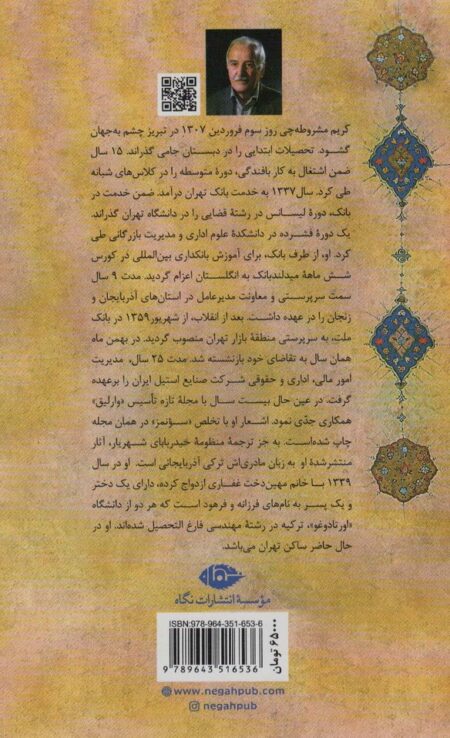 کریم مشروطه‌چی روز سوم فروردین ۱۳۰۷ در تبریز چشم به‌جهان
گشود. تحصیلات ابتدایی را در دبستان جامی گذراند. ۱۵ سال
ضمن اشتغال به کار بافندگی، دورهٔ متوسطه را در کلاس‌های شبانه
طی کرد. سال ۱۳۳۷ به خدمت بانک تهران درآمد. ضمن خدمت در
بانک، دورهٔ لیسانس در رشتهٔ قضایی را در دانشگاه تهران گذراند.
یک دورهٔ فشرده در دانشکدهٔ علوم اداری و مدیریت بازرگانی طی
کرد. او، از طرف بانک، برای آموزش بانکداری بین‌المللی در کورس
شش ماههٔ میدلندبانک به انگلستان اعزام گردید. مدت ۹ سال
سمت سرپرستی و معاونت مدیرعامل در استان‌های آذربایجان و
زنجان را در عهده داشت. بعد از انقلاب، از شهریور ۱۳۵۹ در بانک
ملت، به سرپرستی منطقهٔ بازار تهران منصوب گردید. در بهمن ماه
همان سال به تقاضای خود بازنشسته شد. مدت ۲۵ سال، مدیریت
امور مالی، اداری و حقوقی شرکت صنایع استیل ایران را برعهده
گرفت. در عین حال بیست سال با مجلهٔ تازه تأسیس «وارلیق»
همکاری جدّی نمود. اشعار او با تخلص «سؤنمز» در همان مجله
چاپ شده‌است. به جز ترجمهٔ منظومهٔ حیدربابای شهریار، آثار
منتشرشدهٔ او به زبان مادری‌اش ترکی آذربایجانی است. او در سال
۱۳۳۹ بـا خانم مهین‌دخت غفاری ازدواج کرده، دارای یک دختر
و یک پسر به نام‌های فرزانه و فرهود است که هر دو از دانشگاه
«اورتادوغو»، ترکیه در رشتهٔ مهندسی فارغ التحصیل شده‌اند. او در
حال حاضر ساکن تهران می‌باشد.
مؤسسهٔ انتشارات نگاه
ISBN:978-964-351-653-6
9 789643 516536
۶۵۰۰۰ تومان
www.negahpub.com
negahpub